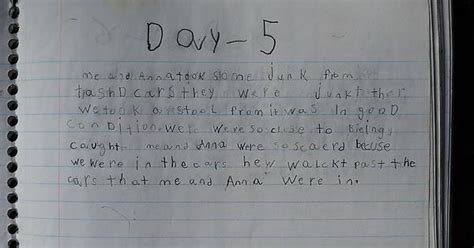 Day-5
me and Anna took some junk from
trashD cars they were junkt ther
we took a stool from it was In gooD
conDition. we were so close to Bieing
caught me and Anna were so scaerd becuse
we were in the cars hew walckt past the
cars that me and Anna were in.